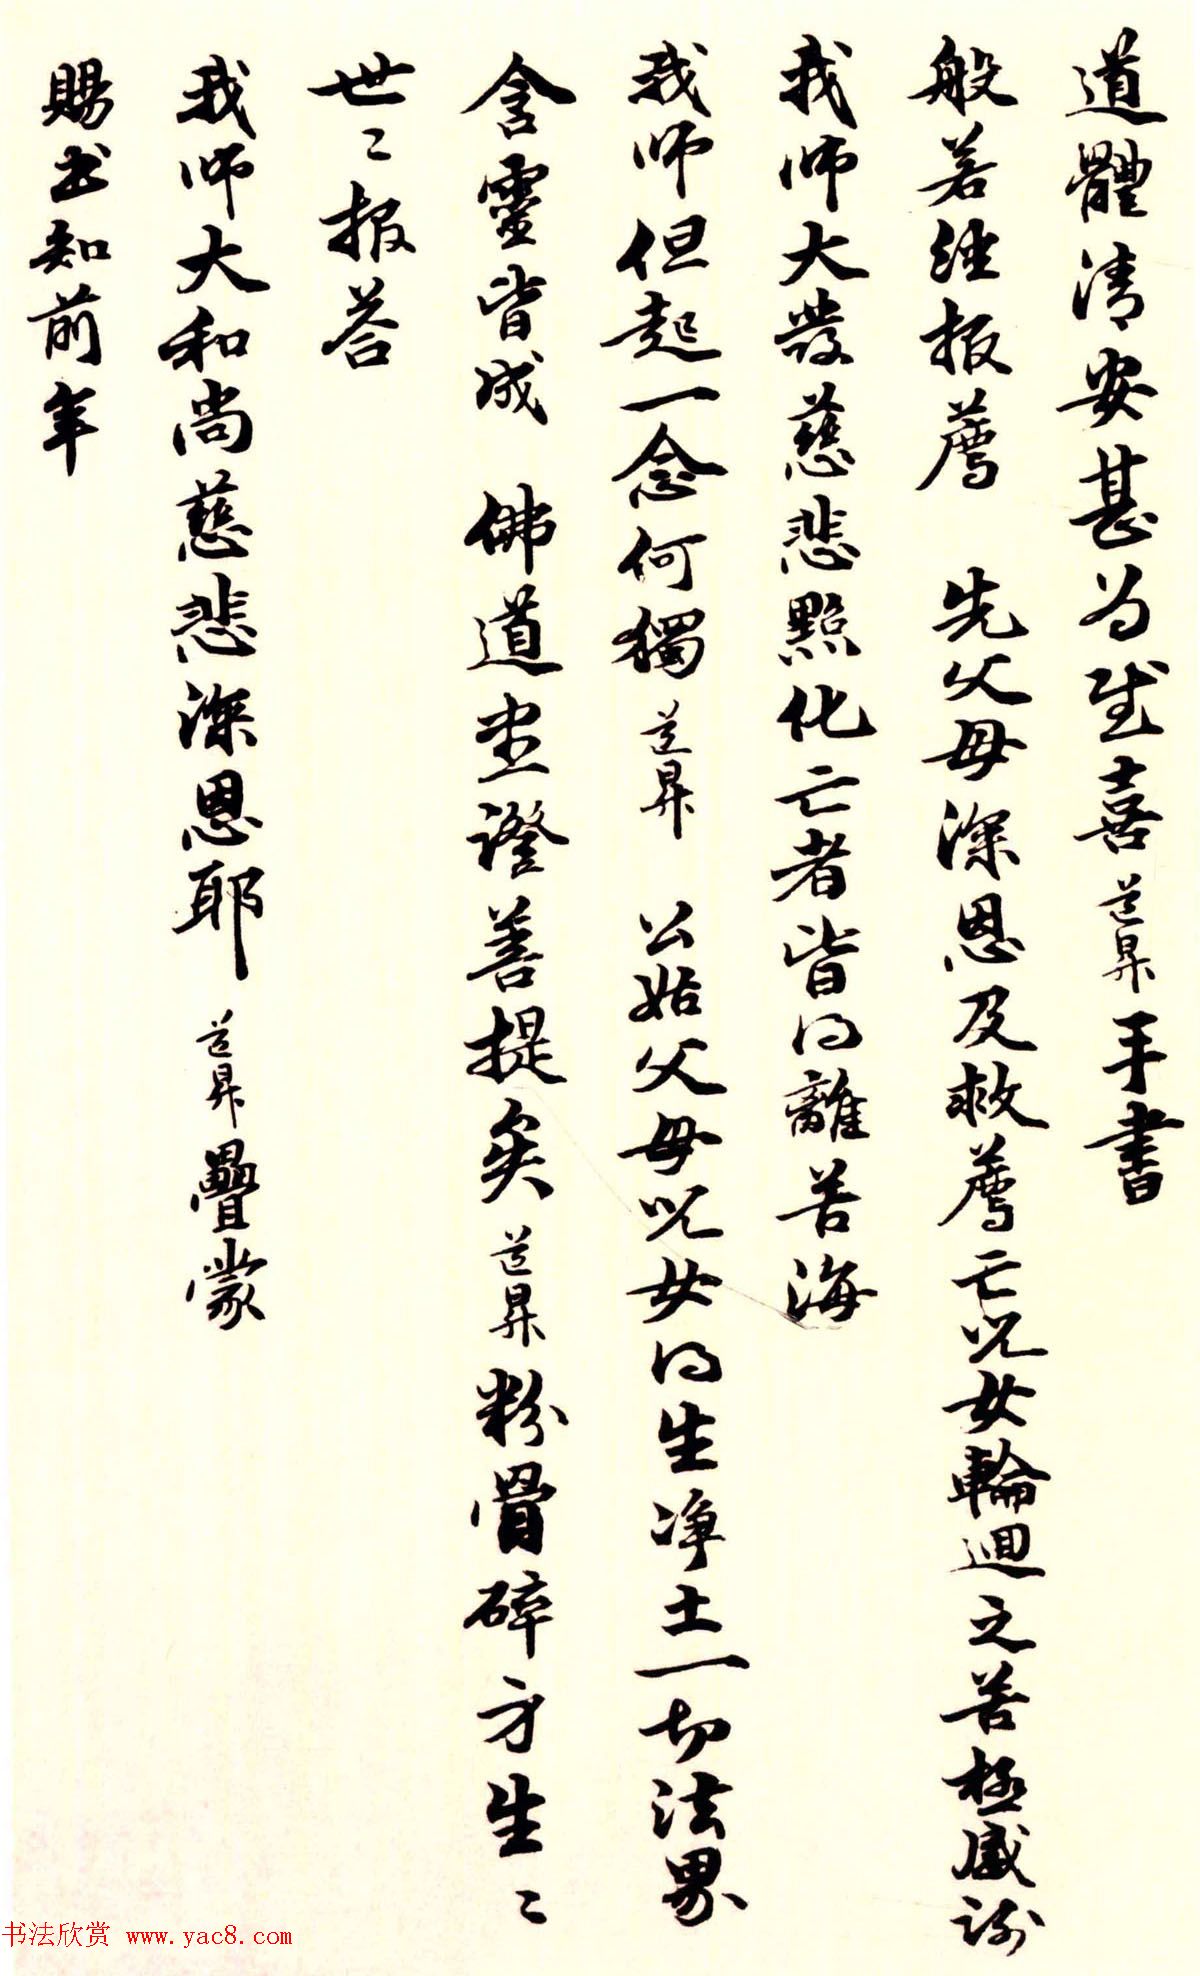 道體清安甚为慰喜道昇手書
般若經報薦 先父母深恩及救薦亡兒女輪迴之苦極感謝
我师大發慈悲點化亡者皆得離苦海
我师但起一念何獨道昇 公姑父母兒女得生净土一切法界
含靈皆成 佛道并證菩提矣道昇粉骨碎身生〻
世〻報荅
我师大和尚慈悲深恩耶道昇疊蒙
賜书知前年
书法欣赏 www.yac8.com